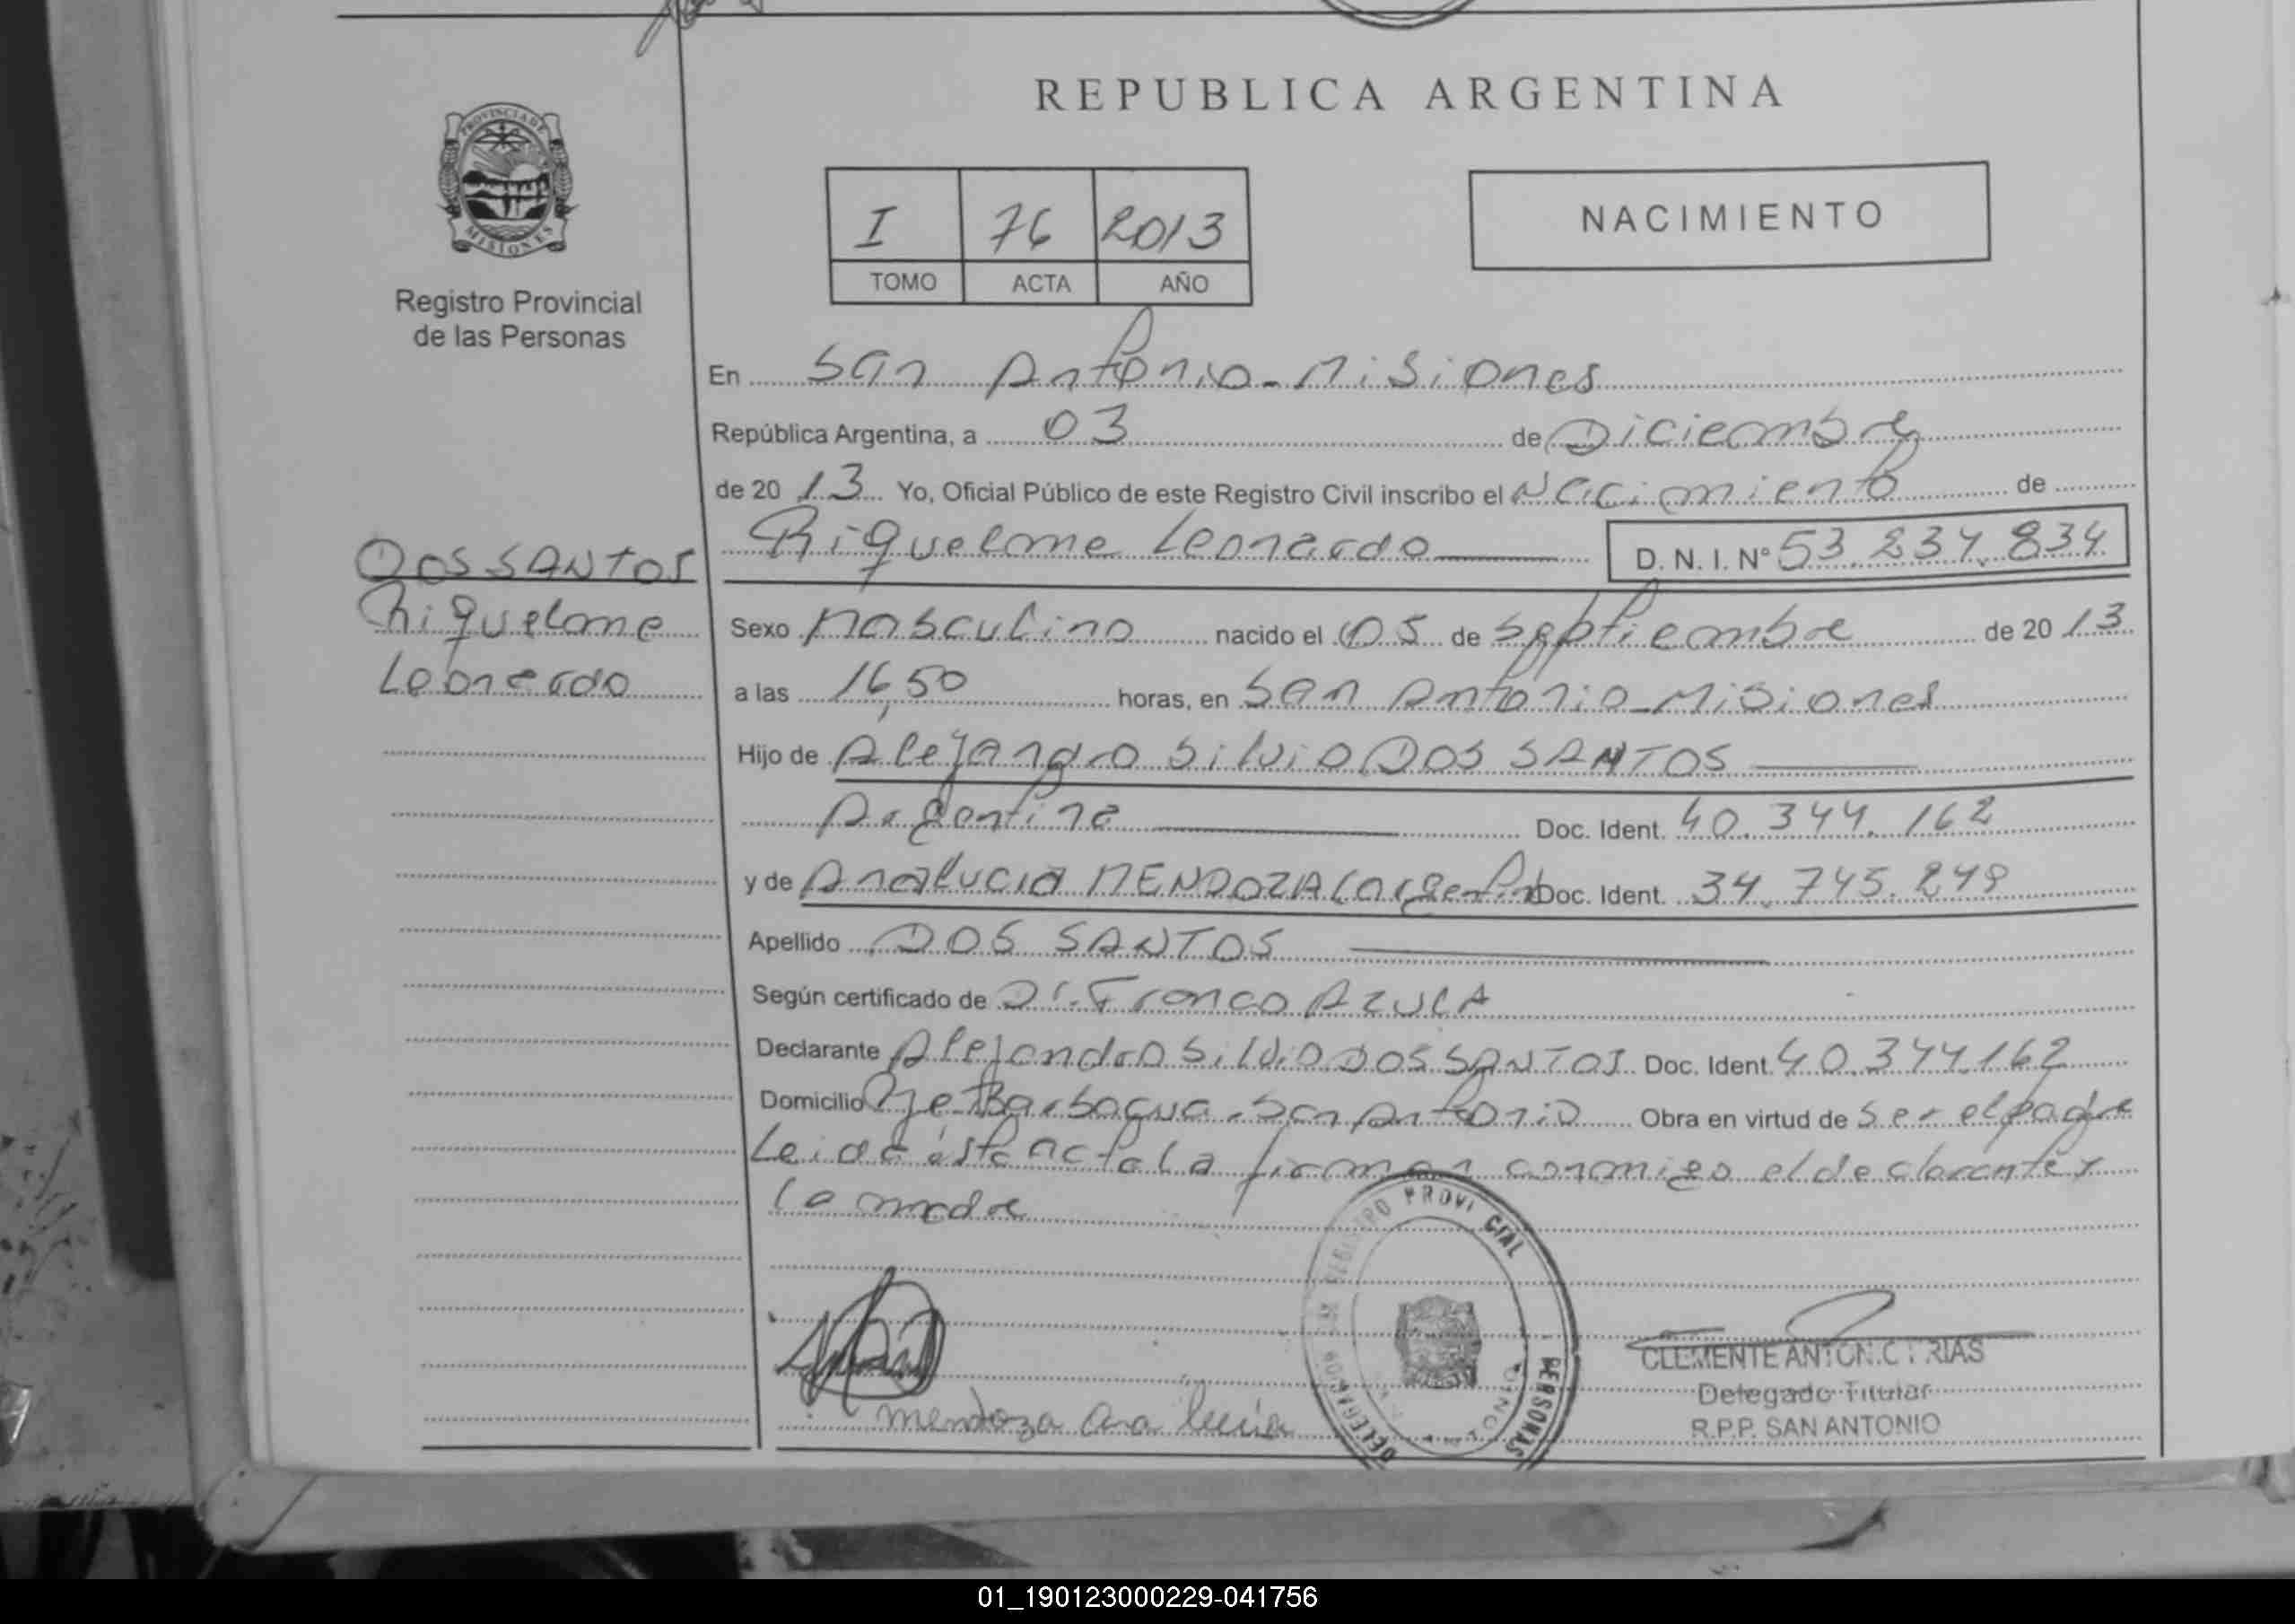 REPUBLICA ARGENTINA
PROVINCIA DE
MISIONES
Registro Provincial
de las Personas
I 76 2013
TOMO ACTA AÑO
NACIMIENTO
En San Antonio - Misiones
República Argentina, a 03 de Diciembre
de 20 13 Yo, Oficial Público de este Registro Civil inscribo el Nacimiento de
Riquelme Leonardo D. N. I. Nº 53.234.834
DOS SANTOS
Riquelme
Leonardo
Sexo Masculino nacido el 05 de Septiembre de 20 13
a las 16,50 horas, en San Antonio - Misiones
Hijo de Alejandro Silvio DOS SANTOS
Argentina Doc. Ident. 40.344.162
y de Analucia MENDOZA (Argentina) Doc. Ident. 34.745.249
Apellido DOS SANTOS
Según certificado de Dr. Franco AZULA
Declarante Alejandro Silvio DOS SANTOS Doc. Ident. 40.344.162
Domicilio Barbacua - San Antonio Obra en virtud de Ser el padre
Leida ésta acta la firman conmigo el declarante y
la madre
REGISTRO PROVINCIAL
PERSONAS
DELEGACION
CLEMENTE ANTONIO
Delegado Titular
R.P.P. SAN ANTONIO
mendoza ana lucia
01_190123000229-041756